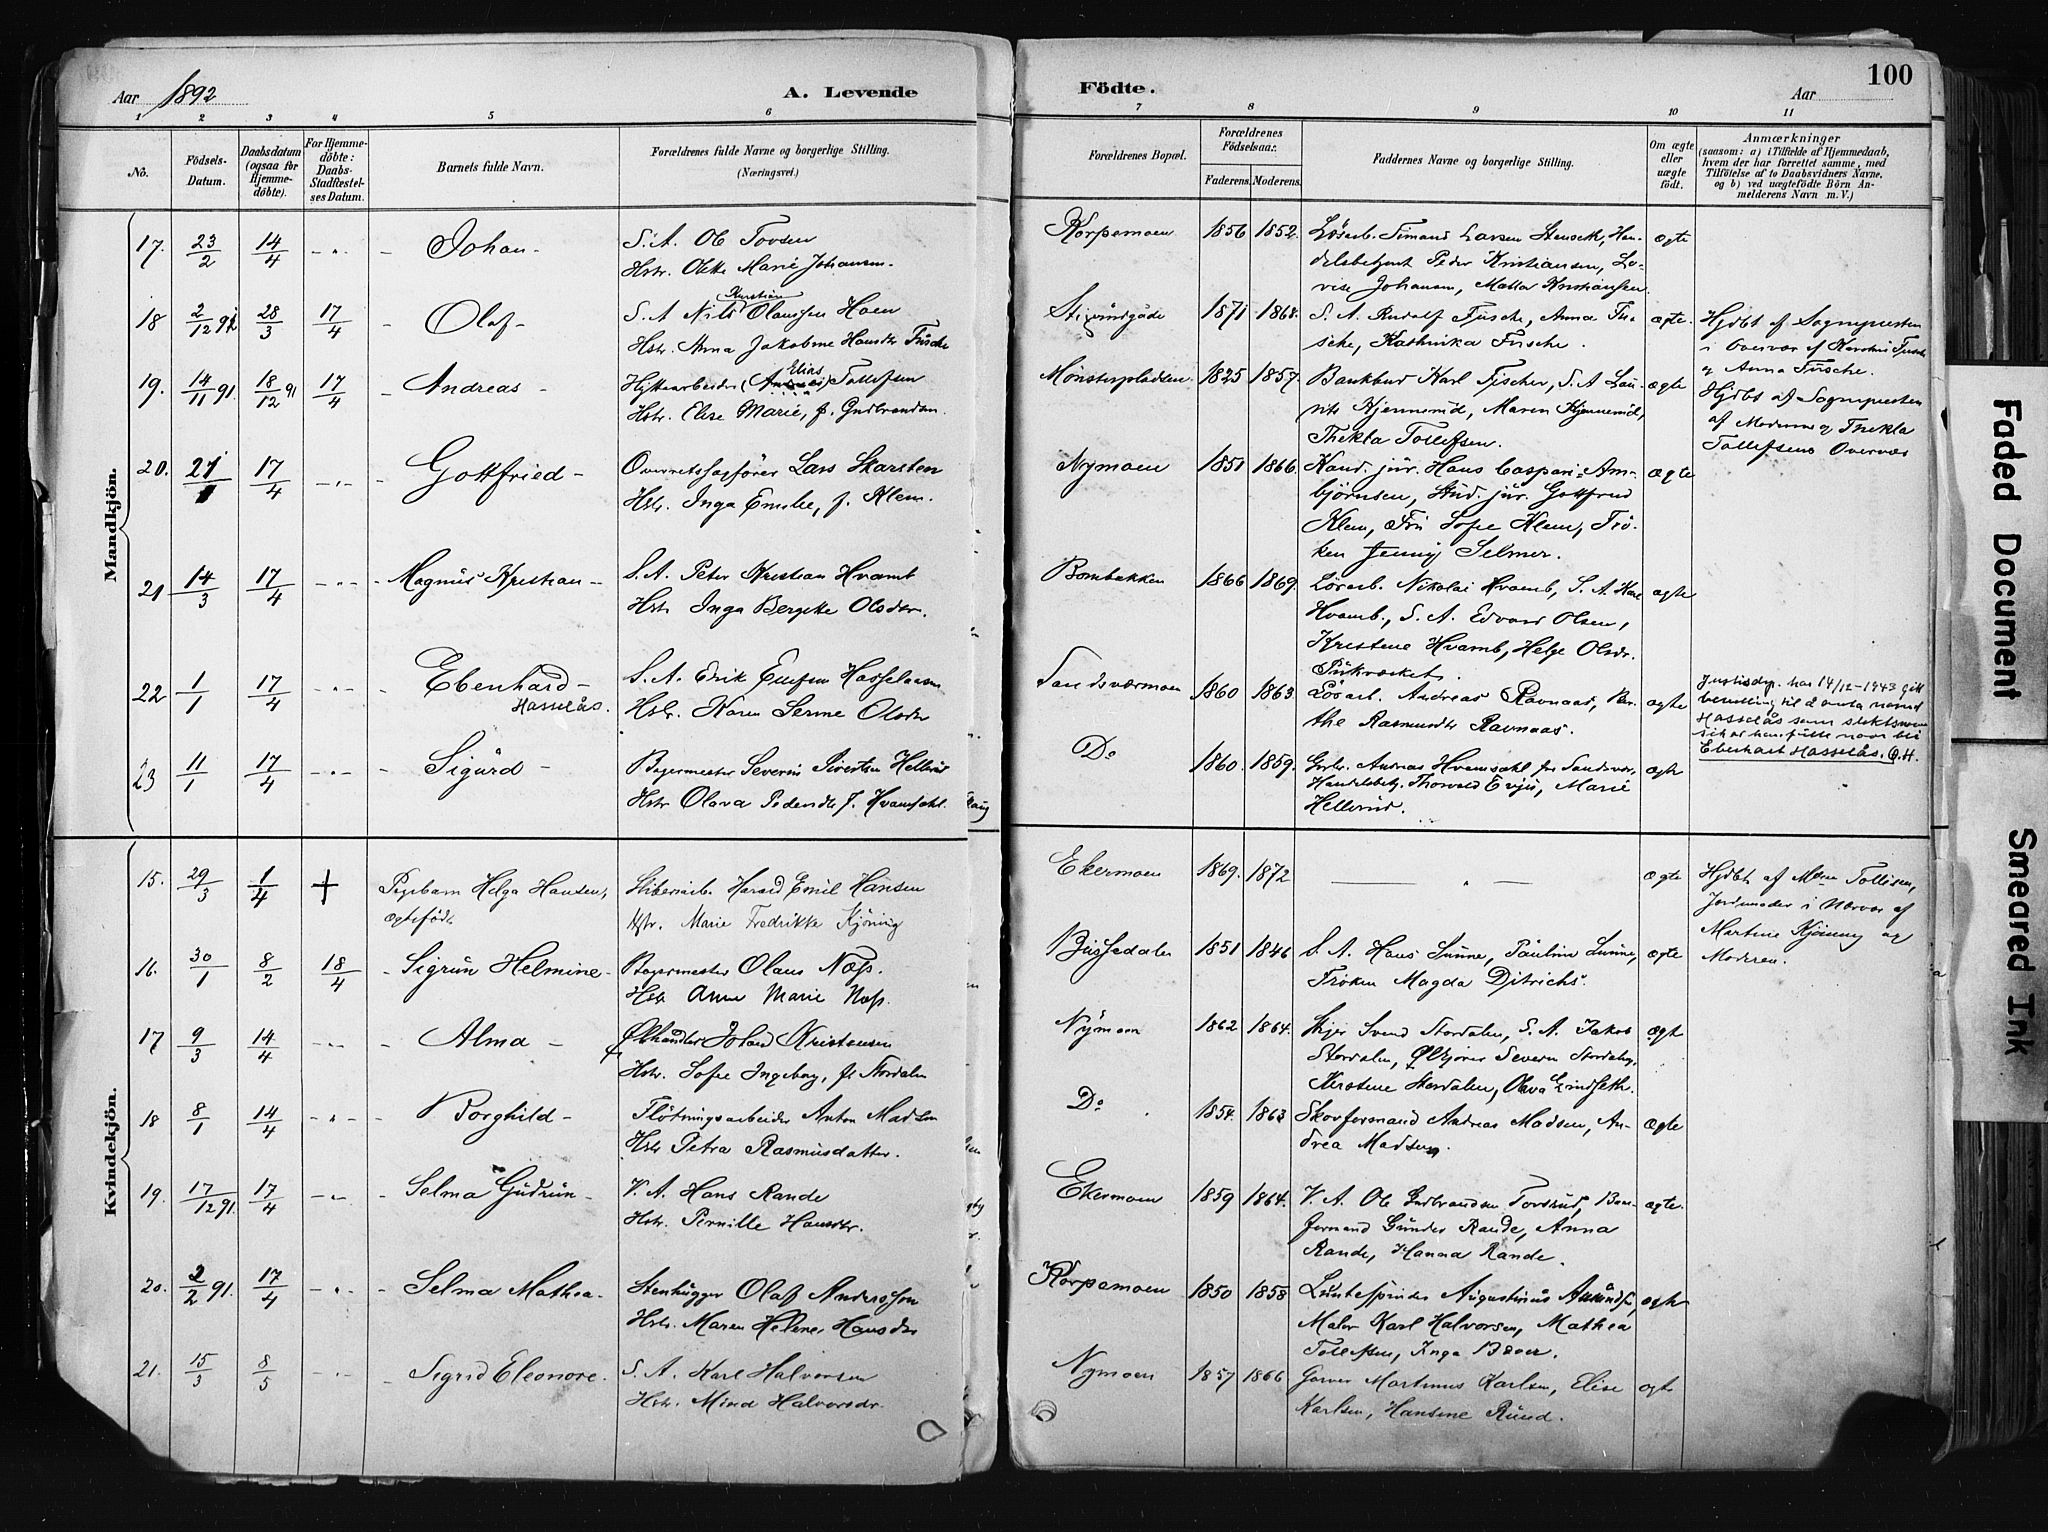 Aar 1892
A. Levende
Födte.
Aar
100
1 2 3 4 5 6 7 8 9 10 11
No.
Födsels-
Datum.
Daabsdatum
(ogsaa for
Hjemme-
döbte).
For Hjemme-
döbte:
Daabs-
Stadfæstel-
ses Datum.
Barnets fulde Navn.
Forældrenes fulde Navne og borgerlige Stilling.
(Næringsvei.)
Forældrenes Bopæl.
Forældrenes
Födselsaar.
Faderens. Moderens.
Faddernes Navne og borgerlige Stilling.
Om ægte
eller
uægte
födt.
Anmærkninger
(saasom: a) i Tilfælde af Hjemmedaab,
hvem der har forrettet samme, med
Tilföielse af to Daabsvidners Navne.
og b) ved uægtefödte Börn An-
melderens Navn m. V.)
Mandkjön.
17. 23/2 14/4 - " - Johan - S. A. Ole Tovsen
Hstr. Olette Marie Johansen
Korpemoen 1856 1852. Løsarb. Simand Larsen Stenseth, Han-
delsbetjent Peder Kristiansen, Lo-
vise Johansen, Mattea Kristiansen.
ægte
18 2/12 91 28/3 17/4 - Olaf - S. A. Nils Kristian Olaussen Hoen
Hstr. Anna Jakobine Hansdtr. Fusche
1871 1868. S. A. Rudolf Fusche, Anna Fu-
sche, Kathinka Fusche.
ægte.
Hjdbt af Sognepresten
i Overvær af Fusche
og Anna Fusche.
19. 14/11 91. 18/12 91 17/4 - Andreas - Hyttearbeider Elias Tollefsen
Hstr. Elise Marie, f. Gudbrandsen
Mønsterpladsen. 1825 1857. Bankbud Karl Fischer, S. A. Lau-
rits Hjennerud, Maren Hjennerud,
Thekla Tollefsen.
ægte
Hjdbt af Sognepresten
af Moderens og Thekla
Tollefsens Overvær
20. 21/1 17/4 - " - Gottfried - Overretssagfører Lars Skarsten
Hstr. Inga Emilie, f. Klem.
Nymoen 1851 1866. Kand. jur. Hans Caspari Am-
bjørnsen, Stud. jur. Gottfried
Klem, Fru Sofie Klem, Frø-
ken Jenny Selmer.
ægte
21 14/3 17/4 - " - Magnus Kristian - S. A. Peter Kristian Hvamb
Hstr. Inga Bergitte Olsdtr.
Bombakken 1866 1869. Løsarb. Nikolai Hvamb, S. A. Karl
Hvamb., S. A. Edvard Olsen,
Kristene Hvamb, Helge Olsdr.
ægte
22 1/1 17/4 - " - Ebenhard -
Hasselås.
S. A. Erik Ellefsen Hasselaasen
Hstr. Karen Serine Olsdtr
Sandsværmoen 1860 1863. Løsarb. Andreas Ravnaas, Ber-
the Rasmusdtr Ravnaas.
ægte
Justisdep. har 14/12-1943 gitt
bevilling til å anta navnet
Hasselås som slektsnavn
slik at hans fulle navn blir
Eberhart Hasselås. O.H.
23 11/1 17/4 - " - Sigurd - Bagermester Severin Sivertsen Hellerud
Hstr Olava Pedersdtr. f. Hvamsahl.
Do 1860. 1859. Grbr. Andreas Hvamsahl fra Sandsvær,
Handelsbetj. Thorvald Evju, Marie
Hellerud.
ægte
Kvindekjön.
15. 29/3 1/4 + Pigebarn Helga Hansen,
ægtefödt
Hiberiarb. Harald Emil Hansen
Hstr. Marie Fredrikke Kjöning
Ekermoen 1869. 1872 - " - ægte
Hjdbt af Mdm Tollisen,
Jordmoder i Nærvær af
Martine Kjönnig og
Moderen.
16. 30/1 8/2 18/4 - Sigrun Helmine - Bagermester Olaus Næss.
Hstr Anne Marie Næss.
Bussedalen 1851 1846 S. A. Hans Lunne, Pauline Lunne,
Frøken Magda Ditrichs.
ægte
17 9/3 14/4 - " - Alma - Ølhandler Johan Kristensen
Hstr. Sofie Ingeborg, f. Stordalen
Nymoen 1862 1864. Skjer Svend Stordalen, S. A. Jakob
Stordalen, Ølkjører Severin Stordalen,
Kirstine Stordalen, Olava Lindseth.
ægte
18 8/1 14/4 - " - Borghild - Fløtningsarbeider Anton Madsen
Hstr Petra Rasmusdatter.
Do 1854. 1863 Skovformand Andreas Madsen, An-
drea Madsen
ægte
19. 17/12 91. 17/4 - " - Selma Gudrun - V. A. Hans Rande
Hstr. Pernille Hansdtr.
Ekermoen 1859 1864. V. A. Ole Gudbrandsen Tovsrud, Ban-
formand Gunder Rande, Anna
Rande, Hanna Rande.
ægte.
20. 2/2 91. 17/4 - " - Selma Mathea - Stenhugger Olaf Andersson
Hstr. Maren Helene Hansdtr
Korpemoen 1850 1858 Luntespinder Augustinus Amundsen,
Maler Karl Halvorsen, Mathea
Tollefsen, Inga Baver.
ægte
21. 15/3 8/5 - " - Sigrid Eleonore. S. A. Karl Halvorsen
Hstr. Mina Halvorsdr.
Nymoen 1857 1866 Garver Martinus Karlsen, Elise
Karlsen, Hansine Ruud.
ægte
Faded Document
Smeared Ink